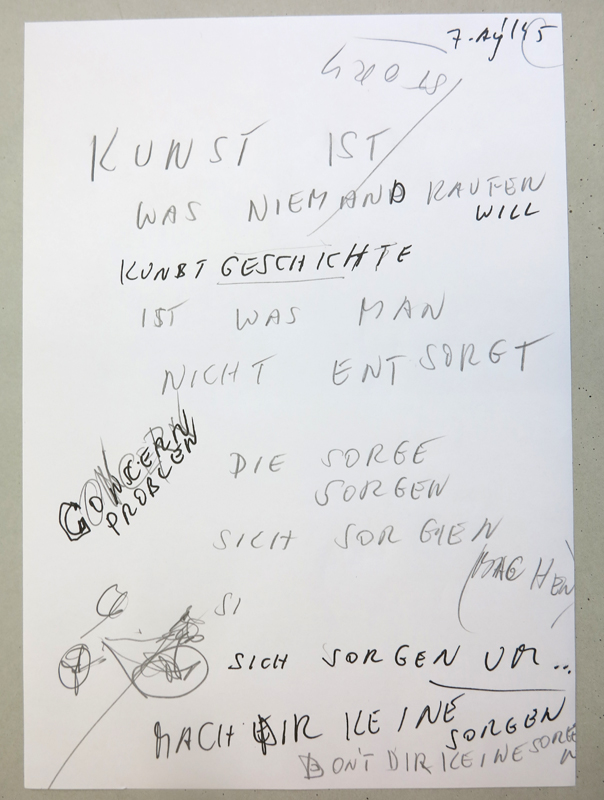 7. Ay/15
STORY
KUNST IST
WAS NIEMAND KAUFEN
WILL
KUNSTGESCHICHTE
IST WAS MAN
NICHT ENTSORGT
CONCERN
PROBLEM
DIE SORGE
SORGEN
SICH SORGEN
(MACHEN)
SI
SICH SORGEN UM...
MACH DIR KEINE
SORGEN
DON'T DIR KEINE SORGEN